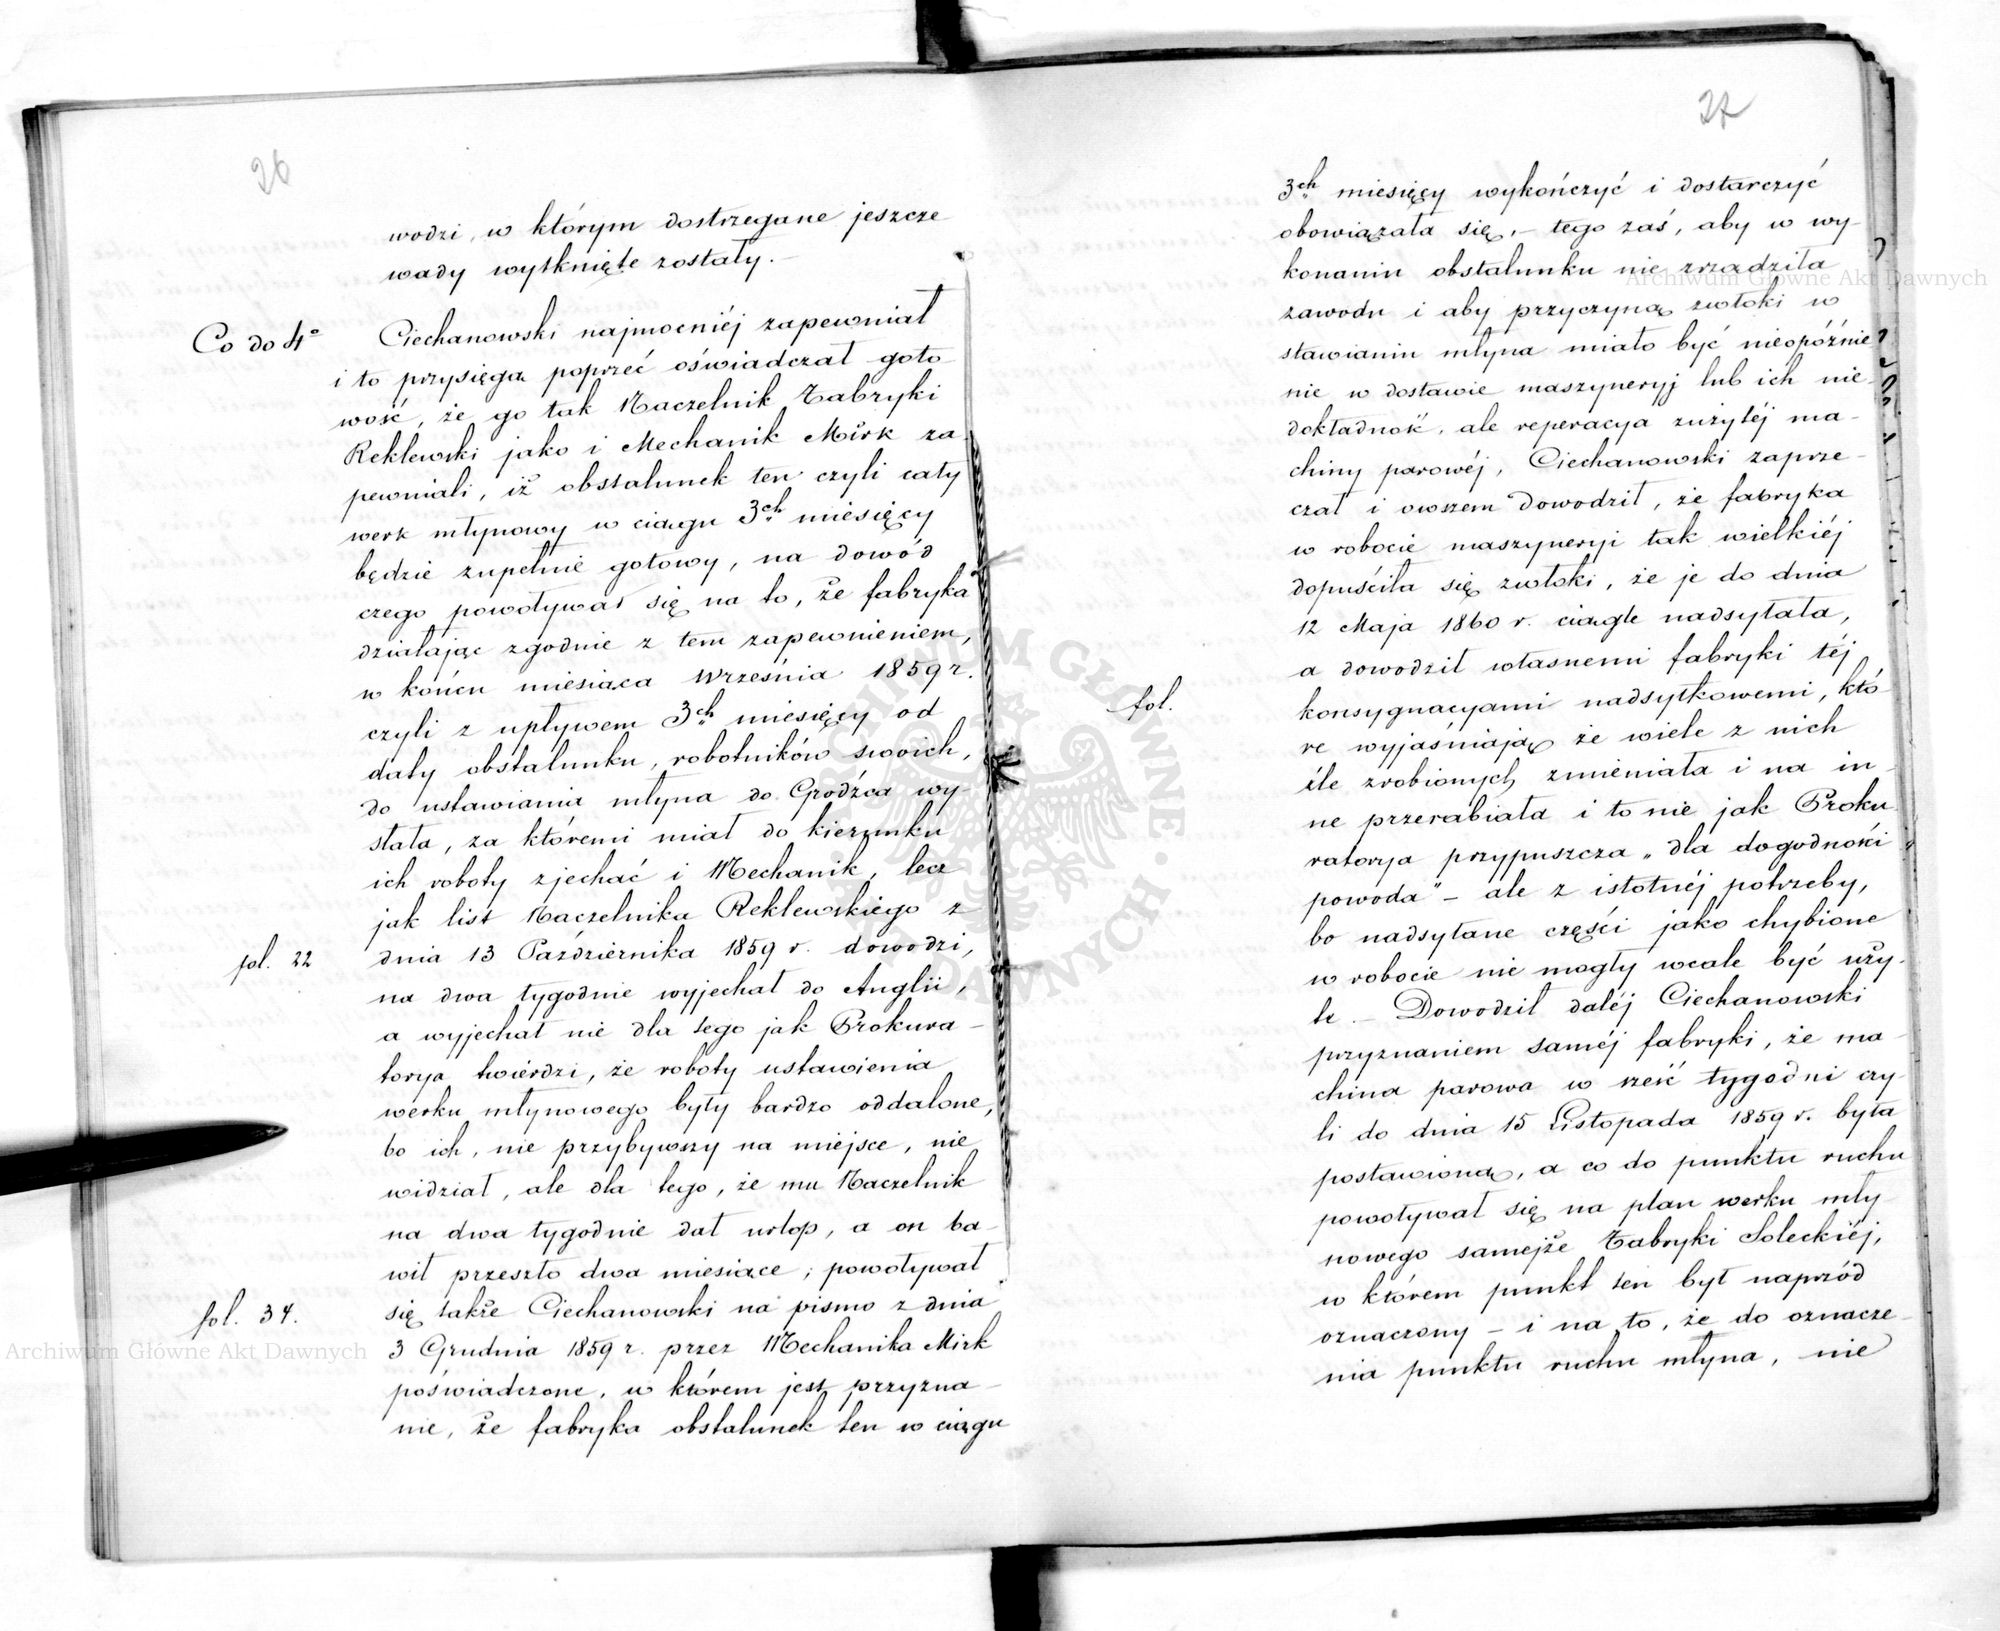 26
wodzi, w którym dostrzegane jeszcze
wady wytknięte zostały. –
Co do 4° Ciechanowski najmocniéj zapewniał
i to przysięgą poprzéć oświadczał goto-
wość, że go tak Naczelnik Fabryki
Reklewski jako i Mechanik Mirk za-
pewniali, iż obstalunek ten czyli cały
werk młynowy w ciągu 3ch miesięcy
będzie zupełnie gotowy, na dowód
czego powoływał się na to, że fabryka
działając zgodnie z tem zapewnieniem,
w końcu miesiąca Września 1859 r.
czyli z upływem 3ch miesięcy od
daty obstalunku, robotników swoich,
do ustawiania młyna do Grodźca wy-
słała, za któremi miał do kierunku
ich roboty zjechać i Mechanik, lecz
jak list Naczelnika Reklewskiego z
fol. 22 dnia 13 Października 1859 r. dowodzi,
na dwa tygodnie wyjechał do Anglii,
a wyjechał nie dla tego jak Prokura-
torya twierdzi, że roboty ustawienia
werku młynowego były bardzo oddalone,
bo ich, nie przybywszy na miejsce, nie
widział, ale dla tego, że mu Naczelnik
na dwa tygodnie dał urlop, a on ba-
wił przeszło dwa miesiące; powoływał
fol. 34. się także Ciechanowski na pismo z dnia
3 Grudnia 1859 r. przez Mechanika Mirk
poświadczone, w którem jest przyzna-
nie, że fabryka obstalunek ten w ciągu
27
3ch miesięcy wykończyć i dostarczyć
obowiązała się, – tego zaś, aby w wy-
konaniu obstalunku nie zrządziła
zawodu i aby przyczyną zwłoki w
stawianiu młyna miało być nieopóźnie
nie w dostawie maszyneryj lub ich nie-
dokładność, ale reperacya zużytéj ma-
chiny parowéj, Ciechanowski zaprze-
czał i owszem dowodził, że fabryka
w robocie maszyneryi tak wielkiéj
dopuściła się zwłoki, że je do dnia
12 Maja 1860 r. ciągle nadsyłała,
a dowodził własnemi fabryki téj
fol. konsygnacyami nadsyłkowemi, któ-
re wyjaśniają że wiele z nich
źle zrobionych zmieniała i na in-
ne przerabiała i to nie jak Proku-
ratorya przypuszcza „dla dogodności
powoda" – ale z istotnéj potrzeby,
bo nadsyłane części jako chybione
w robocie nie mogły wcale być uży-
te. – Dowodził daléj Ciechanowski
przyznaniem saméj fabryki, że ma-
china parowa w sześć tygodni czy-
li do dnia 15 Listopada 1859 r. była
postawioną, a co do punktu ruchu
powoływał się na plan werku mły-
nowego samejże Fabryki Soleckiéj,
w którem punkt ten był naprzód
oznaczony – i na to, że do oznacze-
nia punktu ruchu młyna, nie
Archiwum Główne Akt Dawnych
Archiwum Główne Akt Dawnych
ARCHIWUM GŁÓWNE AKT DAWNYCH